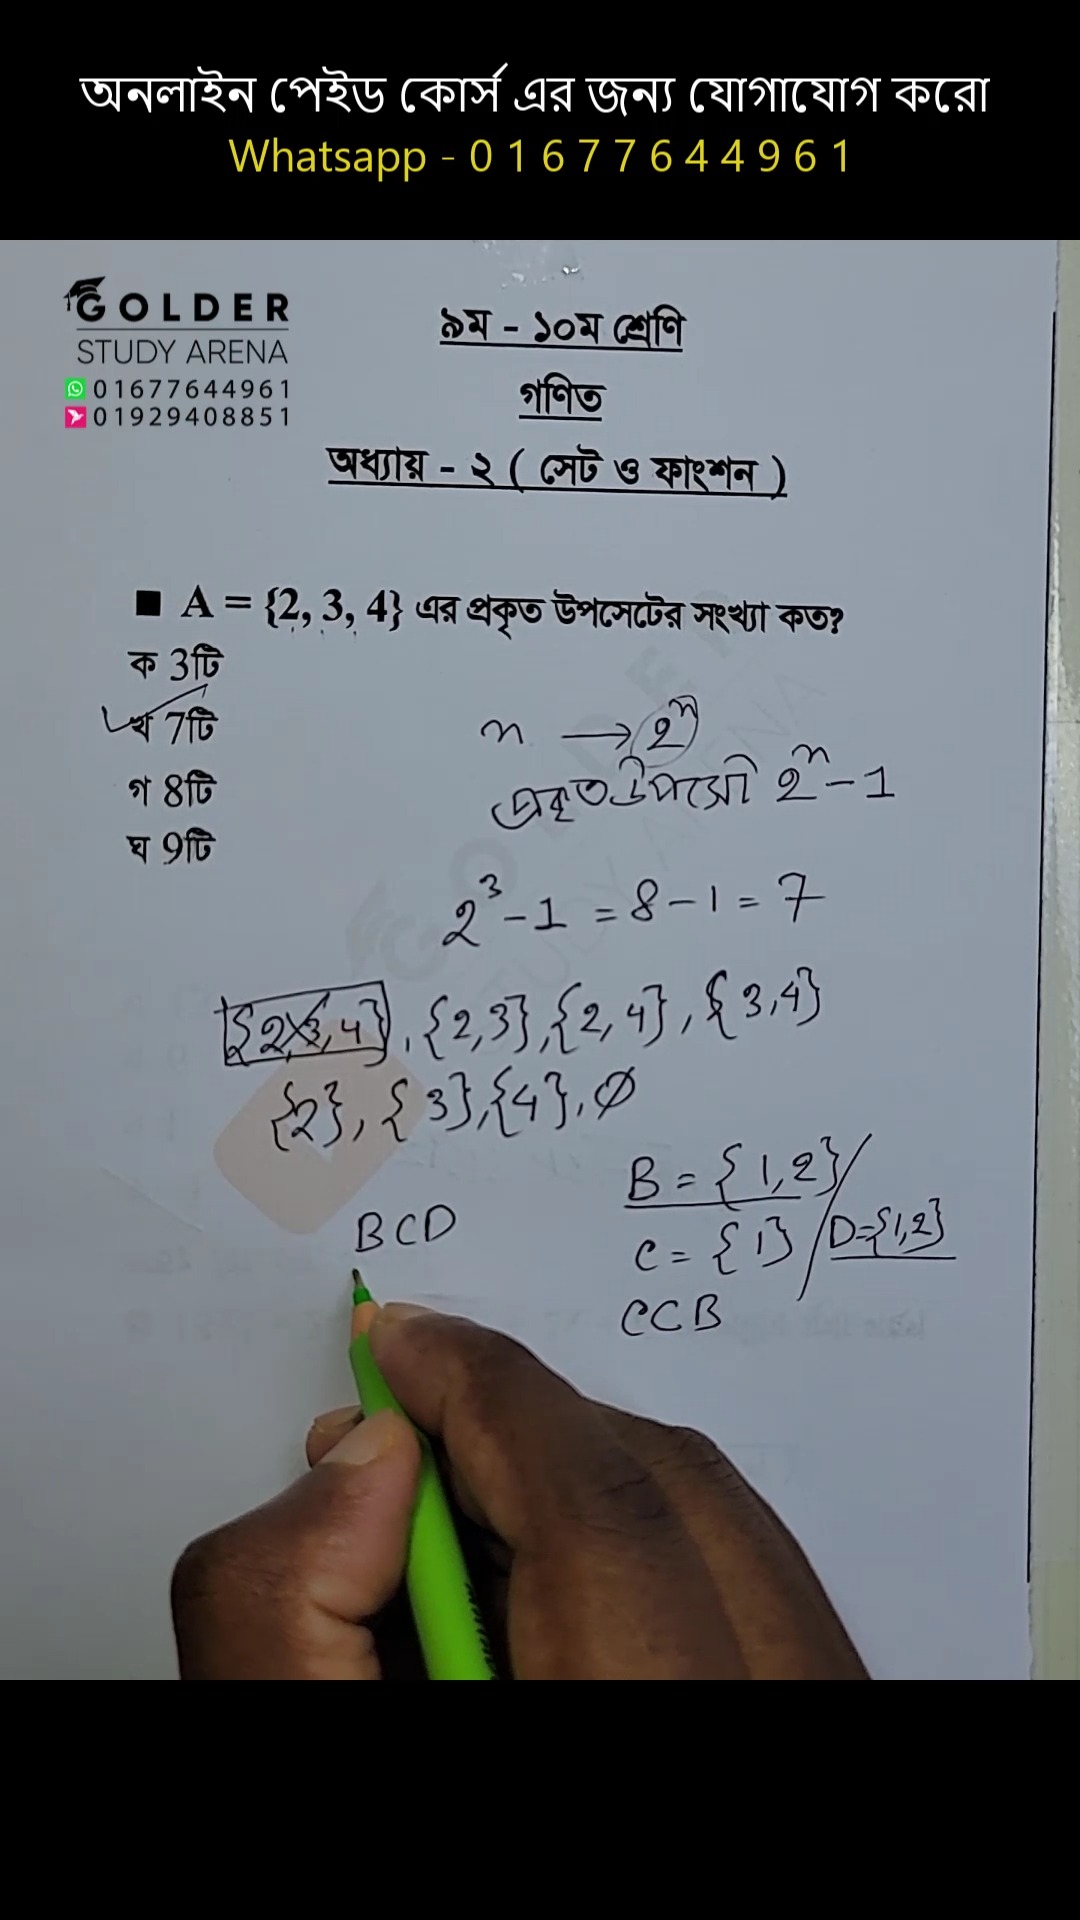 অনলাইন পেইড কোর্স এর জন্য যোগাযোগ করো
Whatsapp - 0 1 6 7 7 6 4 4 9 6 1
GOLDER
STUDY ARENA
01677644961
01929408851
৯ম - ১০ম শ্রেণি
গণিত
অধ্যায় - ২ ( সেট ও ফাংশন )
■ A = {2, 3, 4} এর প্রকৃত উপসেটের সংখ্যা কত?
ক 3টি
খ 7টি
গ 8টি
ঘ 9টি
n → 2ⁿ
প্রকৃত উপসেট 2ⁿ - 1
2³ - 1 = 8 - 1 = 7
{2, 3, 4}, {2,3}, {2, 4}, {3,4}
{2}, {3}, {4}, ∅
B = {1,2}
C = {1} / D={1,2}
C⊂B
B⊂D